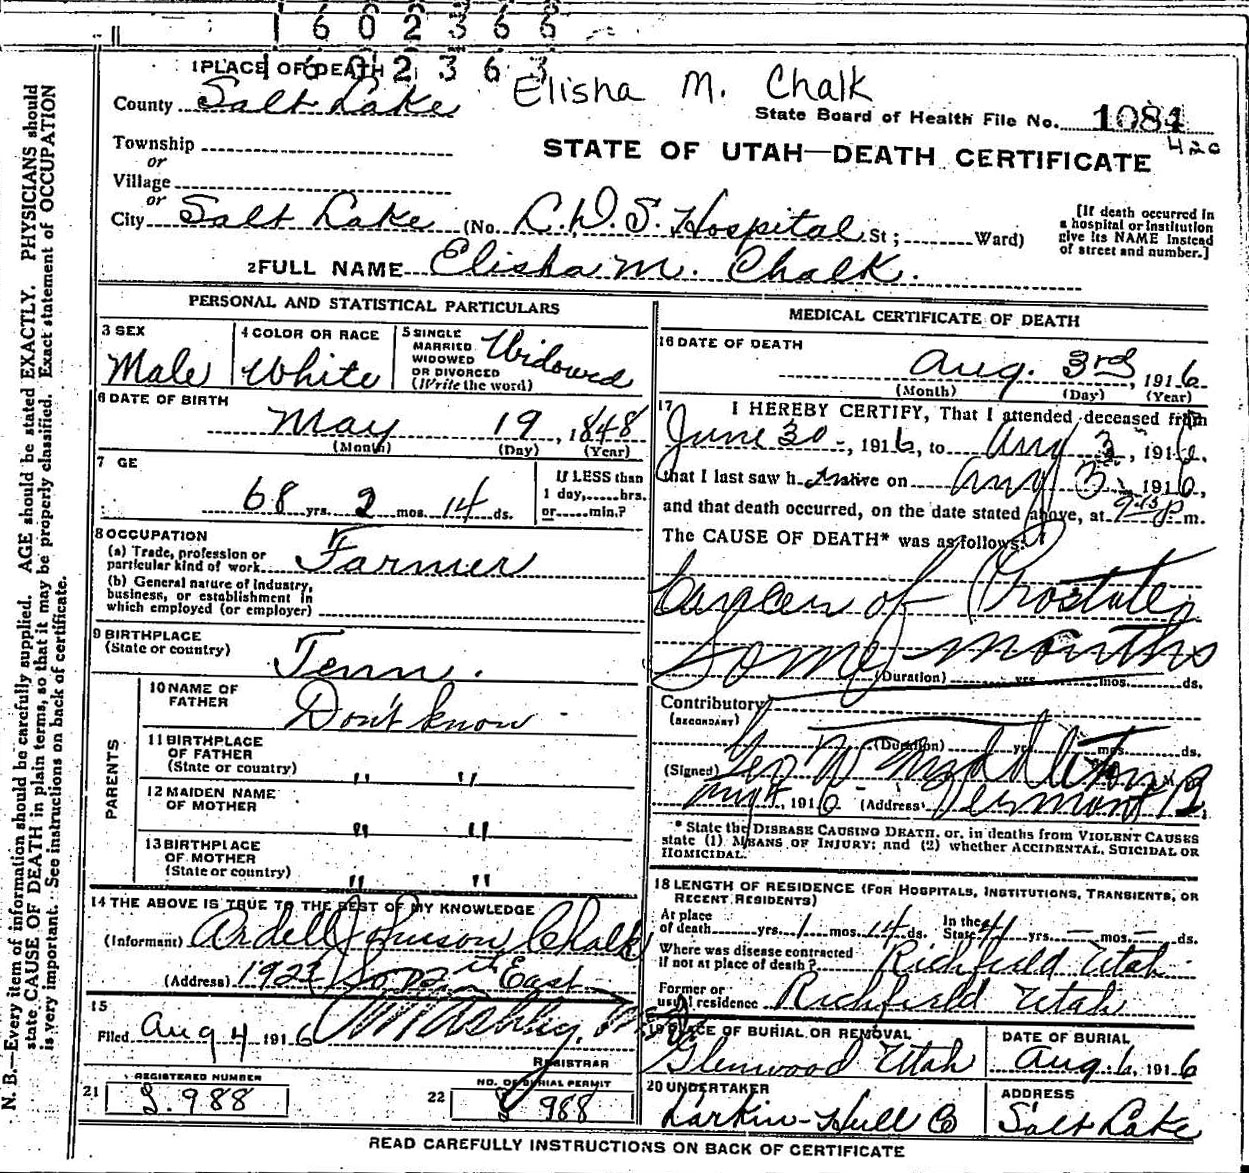 1 6 0 2 3 6 6
1 6 0 2 3 6 3
Elisha M. Chalk
1 PLACE OF DEATH
County Salt Lake
State Board of Health File No. 1084
420
Township
or
Village
or
STATE OF UTAH—DEATH CERTIFICATE
City Salt Lake (No. L.D.S. Hospital St; Ward)
[If death occurred in
a hospital or institution
give its NAME instead
of street and number.]
2 FULL NAME Elisha M. Chalk.
PERSONAL AND STATISTICAL PARTICULARS
3 SEX
Male
4 COLOR OR RACE
White
5 SINGLE
MARRIED
WIDOWED
OR DIVORCED
(Write the word)
Widowed
6 DATE OF BIRTH
May 19, 1848
(Month) (Day) (Year)
7 GE
68 yrs. 2 mos. 14 ds.
If LESS than
1 day,......hrs.
or......min.?
8 OCCUPATION
(a) Trade, profession or
particular kind of work Farmer
(b) General nature of industry,
business, or establishment in
which employed (or employer)
9 BIRTHPLACE
(State or country)
Tenn.
PARENTS
10 NAME OF
FATHER
Don't know
11 BIRTHPLACE
OF FATHER
(State or country) " "
12 MAIDEN NAME
OF MOTHER
" "
13 BIRTHPLACE
OF MOTHER
(State or country) " "
14 THE ABOVE IS TRUE TO THE BEST OF MY KNOWLEDGE
(Informant) Ardell Johnson Chalk
(Address) East
15
Filed Aug 4 1916 Ashby
REGISTRAR
REGISTERED NUMBER
21 S. 988
NO. OF BURIAL PERMIT
22 S 988
MEDICAL CERTIFICATE OF DEATH
16 DATE OF DEATH
Aug. 3rd, 1916
(Month) (Day) (Year)
17 I HEREBY CERTIFY, That I attended deceased from
June 30, 1916, to Aug 3, 1916,
that I last saw h im alive on Aug 3 1916,
and that death occurred, on the date stated above, at 9 45 P m.
The CAUSE OF DEATH* was as follows:
Cancer of Prostate
Some months
(Duration) yrs. mos. ds.
Contributory
(SECONDARY)
(Duration) yrs. mos. ds.
(Signed) Geo W Middleton M. D.
Aug 4, 1916 (Address) Vermont B
* State the DISEASE CAUSING DEATH, or, in deaths from VIOLENT CAUSES
state (1) MEANS OF INJURY; and (2) whether ACCIDENTAL, SUICIDAL OR
HOMICIDAL.
18 LENGTH OF RESIDENCE (FOR HOSPITALS, INSTITUTIONS, TRANSIENTS, OR
RECENT RESIDENTS)
At place
of death yrs. 1 mos. 14 ds.
In the
State 41 yrs. — mos. — ds.
Where was disease contracted
if not at place of death? Richfield Utah
Former or
usual residence Richfield Utah
19 PLACE OF BURIAL OR REMOVAL
Glenwood Utah
DATE OF BURIAL
Aug. 6, 1916
20 UNDERTAKER
Larkin-Hull Co
ADDRESS
Salt Lake
READ CAREFULLY INSTRUCTIONS ON BACK OF CERTIFICATE
N. B.—Every item of information should be carefully supplied. AGE should be stated EXACTLY. PHYSICIANS should
state CAUSE OF DEATH in plain terms, so that it may be properly classified. Exact statement of OCCUPATION
is very important. See instructions on back of certificate.